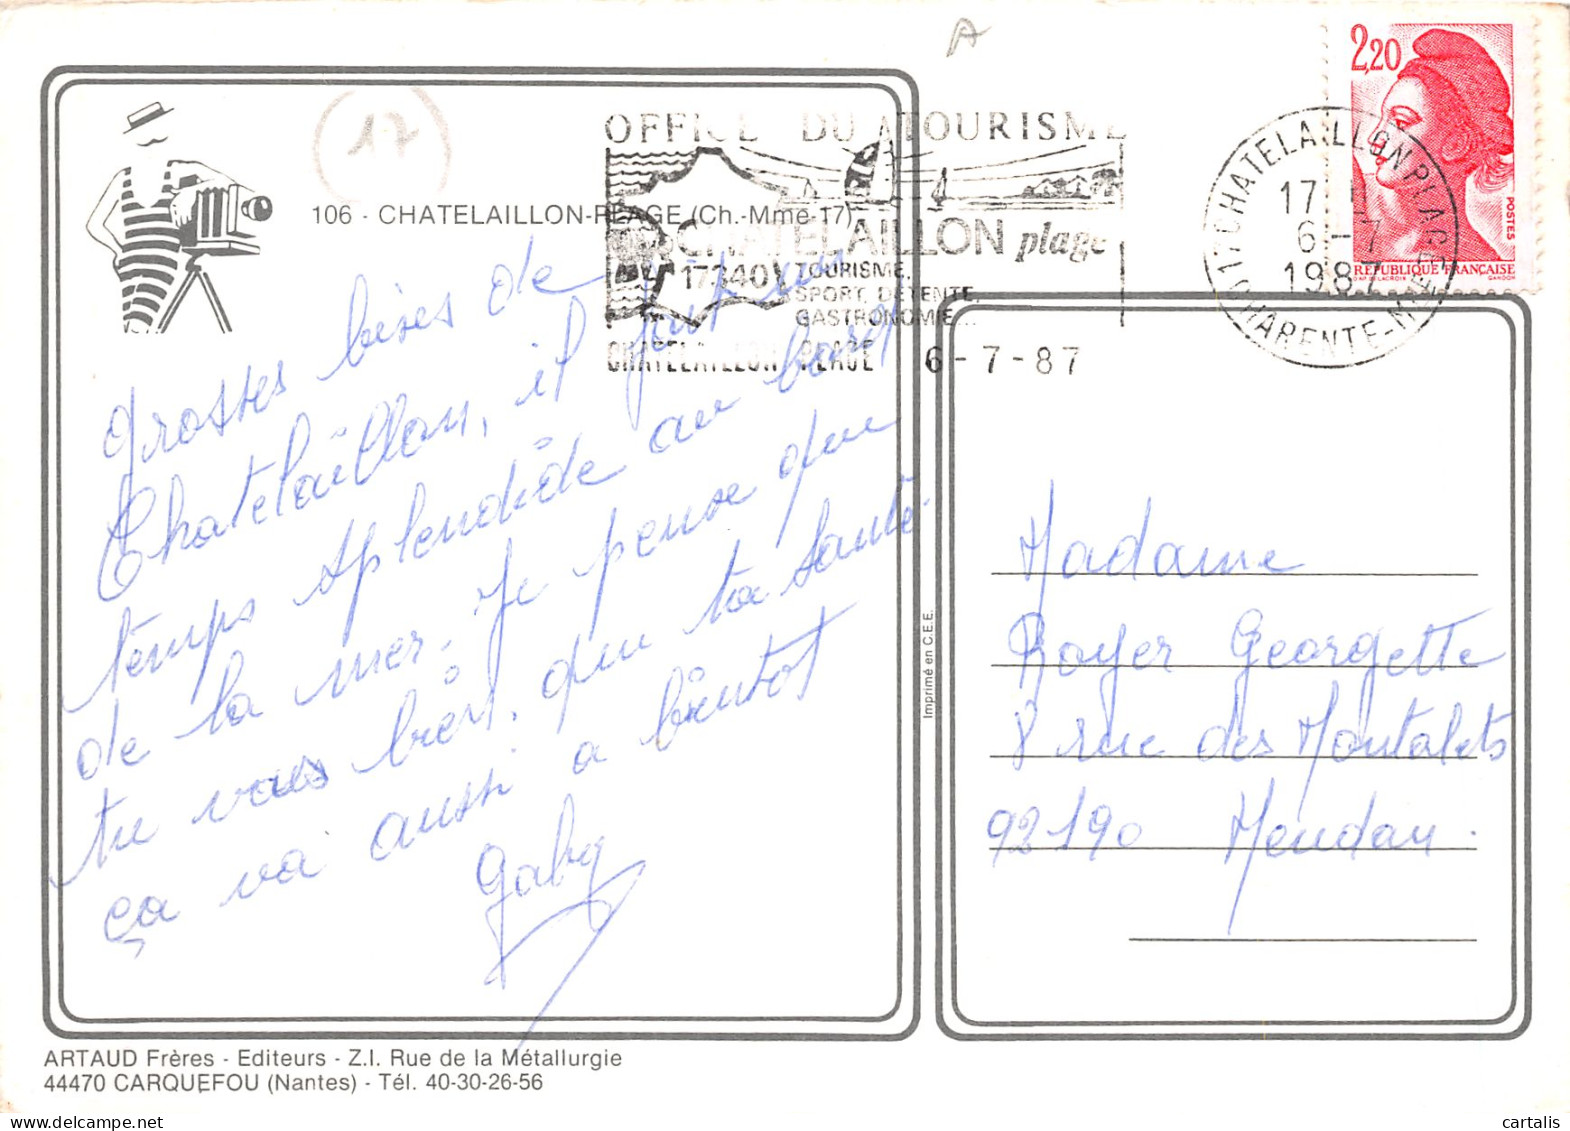 A
17
2,20
POSTES
RÉPUBLIQUE FRANÇAISE
OFFICE DU TOURISME
CHATELAILLON plage
17340
TOURISME,
SPORT, DETENTE,
GASTRONOMIE...
CHATELAILLON PLAGE 6-7-87
17 CHATELAILLON PLAGE
17 H
6 - 7
1987
CHARENTE-Mme
106 - CHATELAILLON-PLAGE (Ch.-Mme-17)
Grosses bises de
Chatelaillon, il fait un
temps splendide au bord
de la mer. Je pense que
tu vas bien, que ta santé
ça va aussi a bientot
Gaby
Imprimé en C.E.E.
Madame
Royer Georgette
8 rue des Montalets
92190 Meudan.
ARTAUD Frères - Editeurs - Z.I. Rue de la Métallurgie
44470 CARQUEFOU (Nantes) - Tél. 40-30-26-56
cartalis